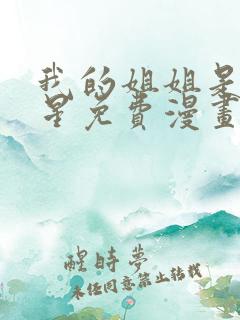 我的姐姐是
星免費漫畫
醒時夢
未經同意禁止轉載